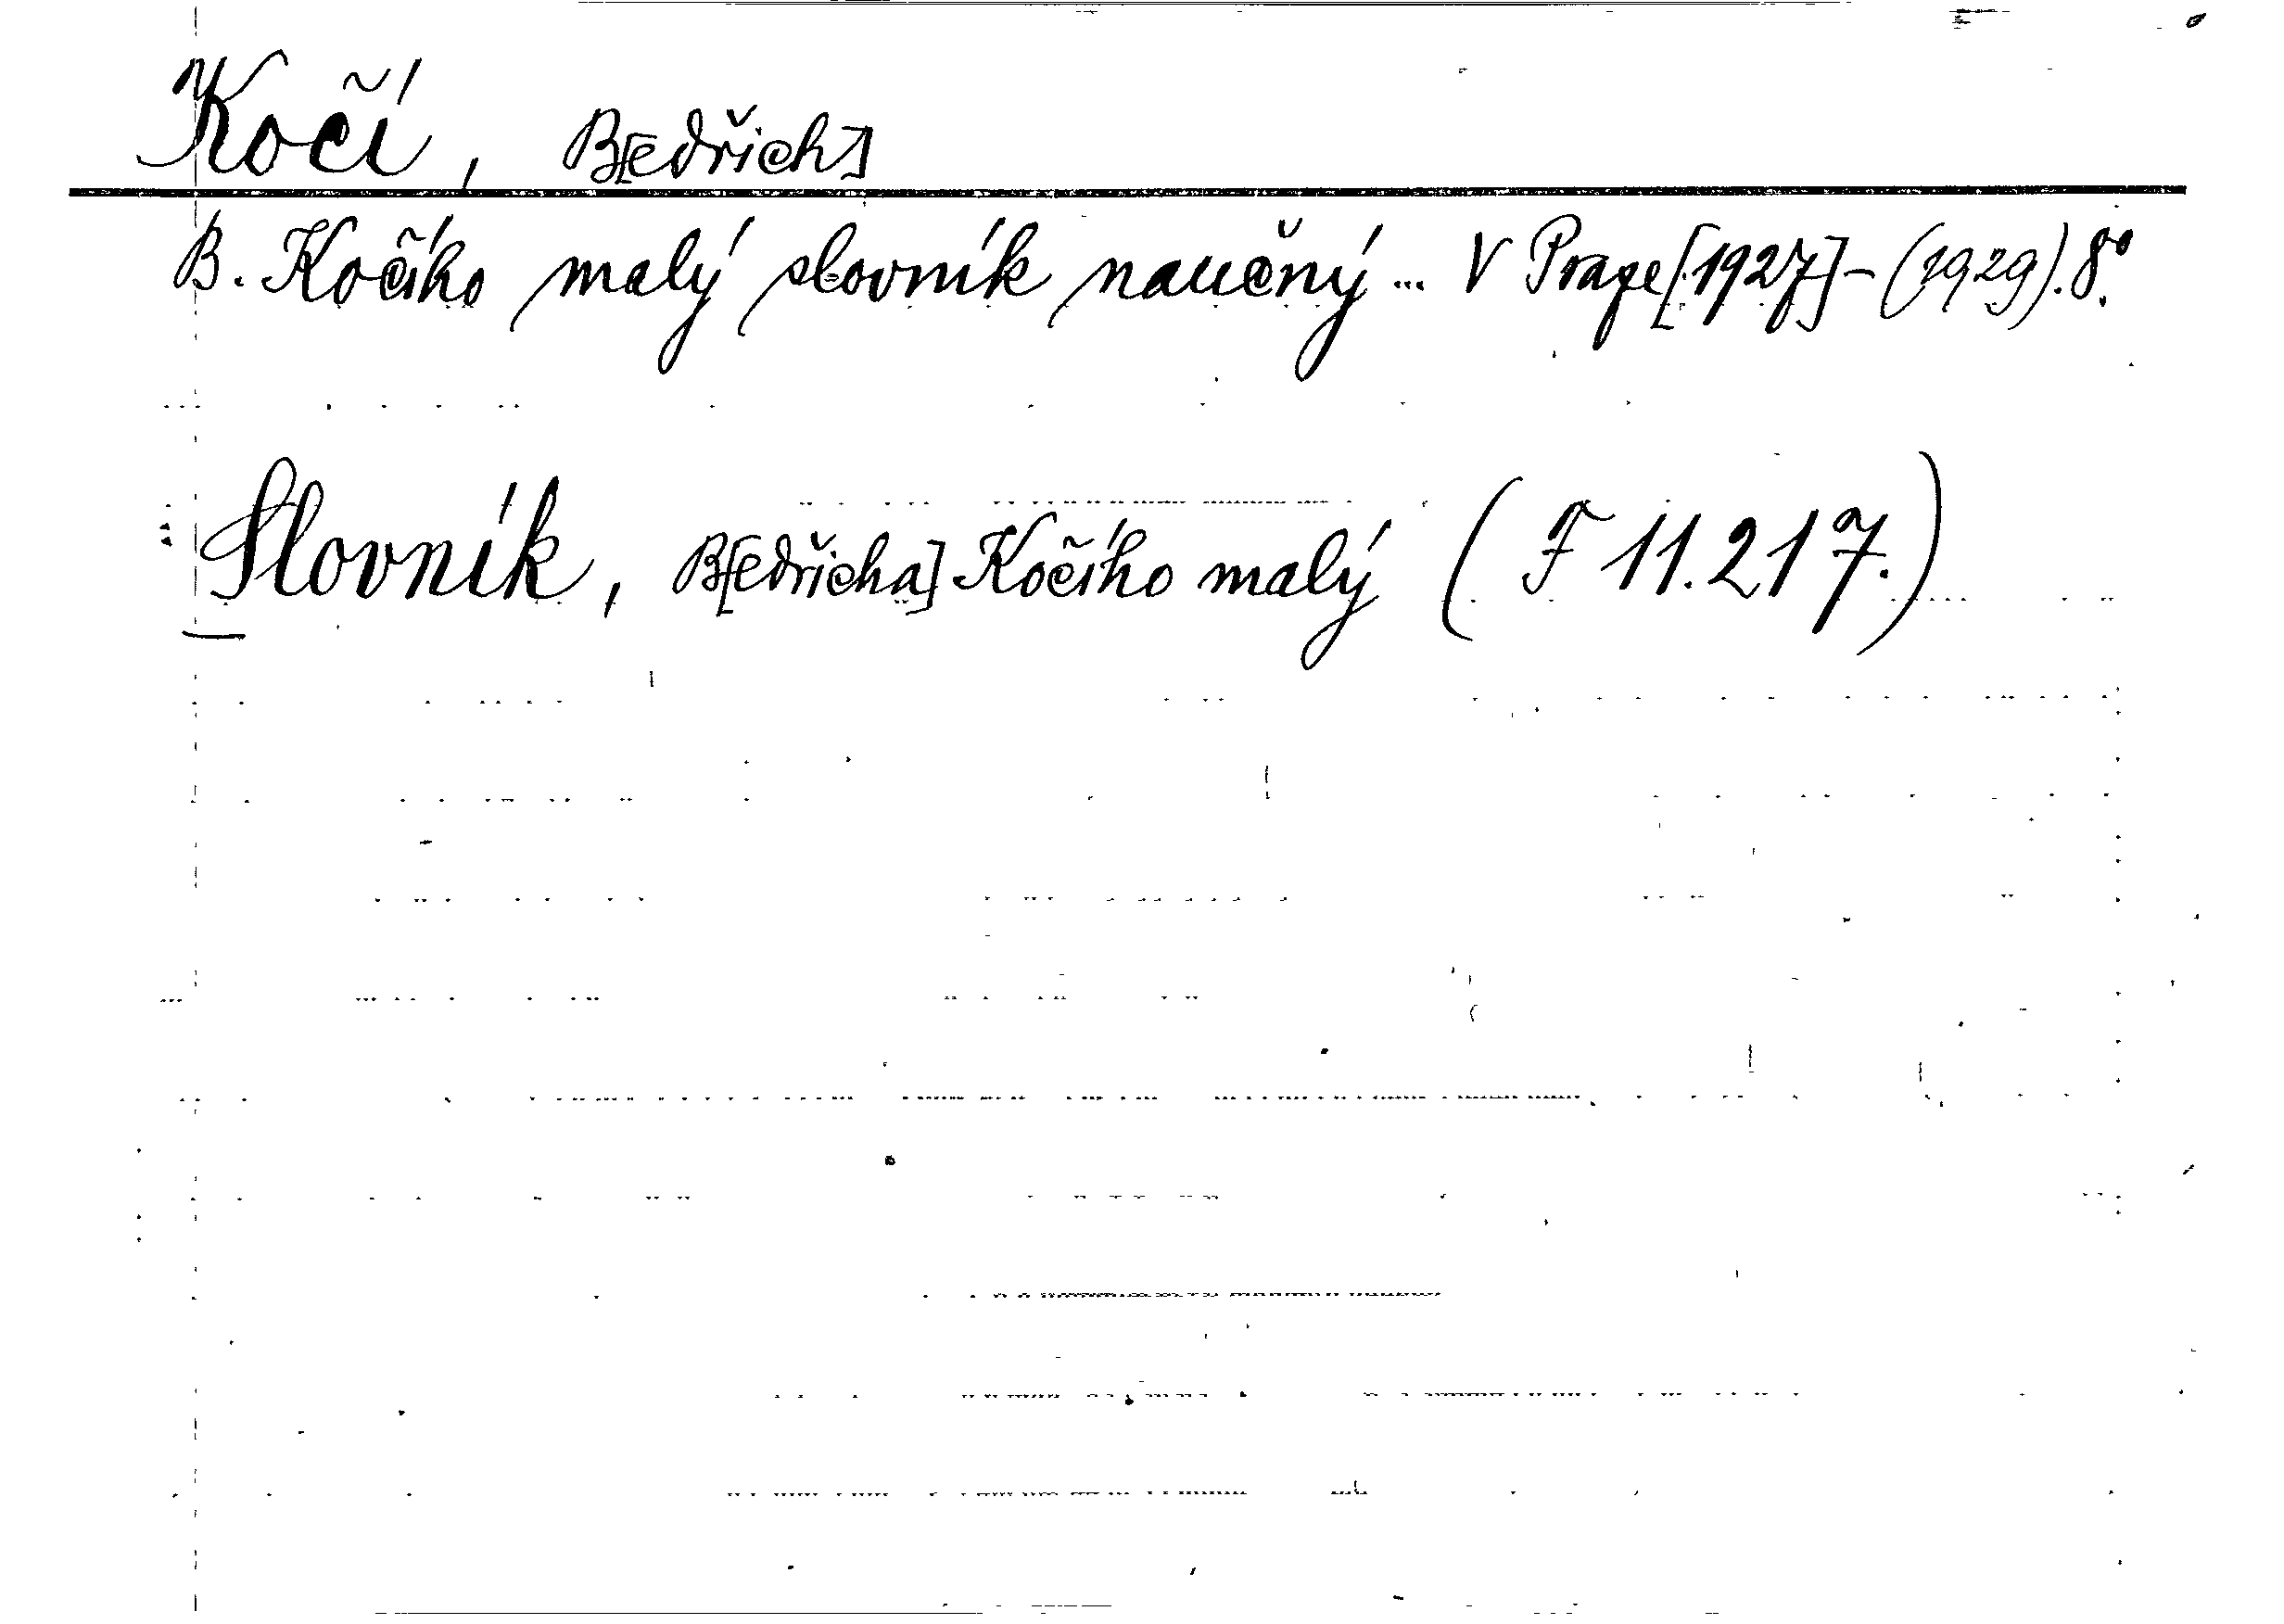 Kočí, B[edřich]
B. Kočího malý slovník naučný ... V Praze [1927]-(1929). 8°.
Slovník, B[edřicha] Kočího malý (F 11.217.)